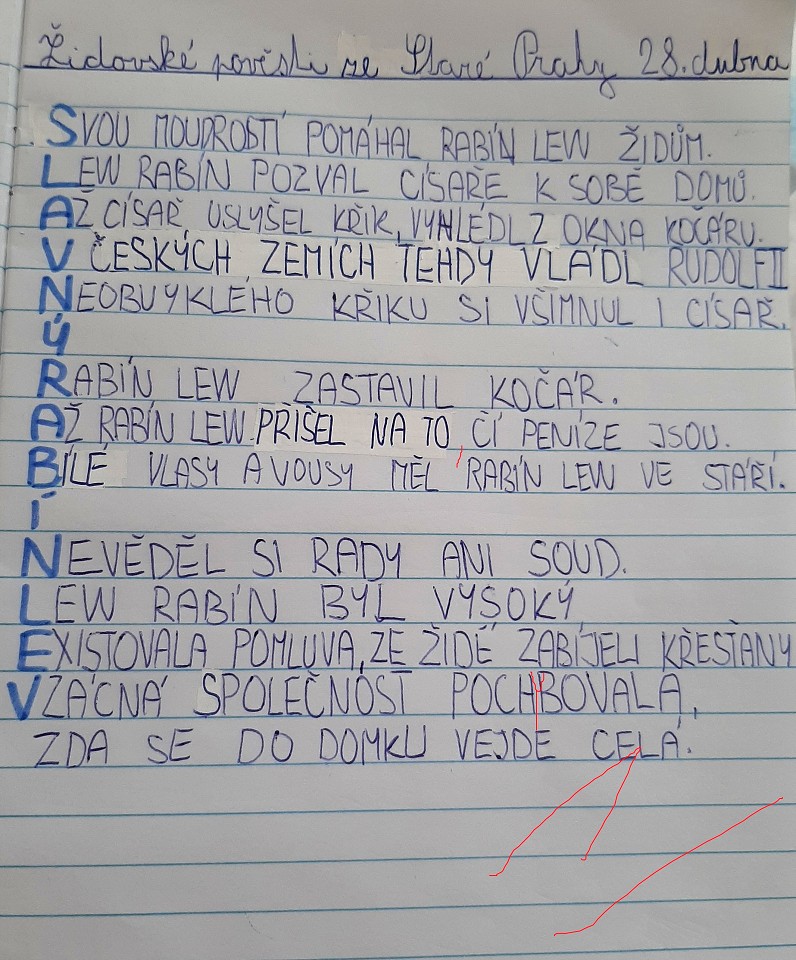 Židovské pověsti ze Staré Prahy 28. dubna
SVOU MOUDROSTÍ POMÁHAL RABÍN LEW ŽIDŮM.
LEW RABÍN POZVAL CÍSAŘE K SOBĚ DOMŮ.
AŽ CÍSAŘ USLYŠEL KŘIK, VYHLÉDL Z OKNA KOČÁRU.
V ČESKÝCH ZEMÍCH TEHDY VLÁDL RUDOLF II
NEOBVYKLÉHO KŘIKU SI VŠIMNUL I CÍSAŘ.
Ý
RABÍN LEW ZASTAVIL KOČÁR.
AŽ RABÍN LEW PŘIŠEL NA TO, ČÍ PENÍZE JSOU.
BÍLÉ VLASY A VOUSY MĚL RABÍN LEW VE STÁŘÍ.
Í
NEVĚDĚL SI RADY ANI SOUD.
LEW RABÍN BYL VYSOKÝ
EXISTOVALA POMLUVA, ŽE ŽIDÉ ZABÍJELI KŘESŤANY
VZÁCNÁ SPOLEČNOST POCHYBOVALA,
ZDA SE DO DOMKU VEJDE CELÁ.